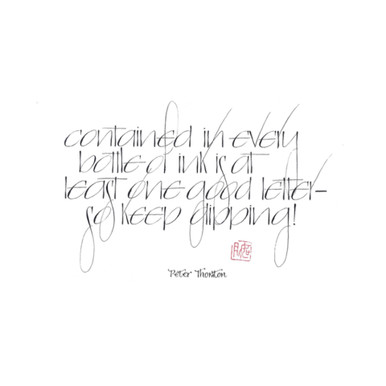 contained in every
bottle of ink is at
least one good letter-
so keep dipping!
Peter Thornton